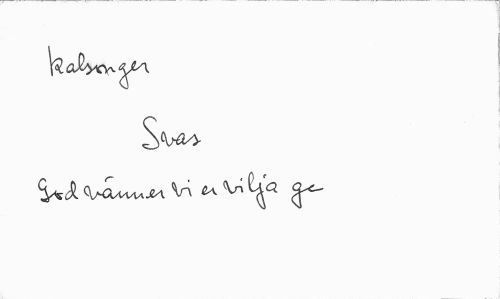 Kalsonger
Svas
God vänner vi er vilja ge